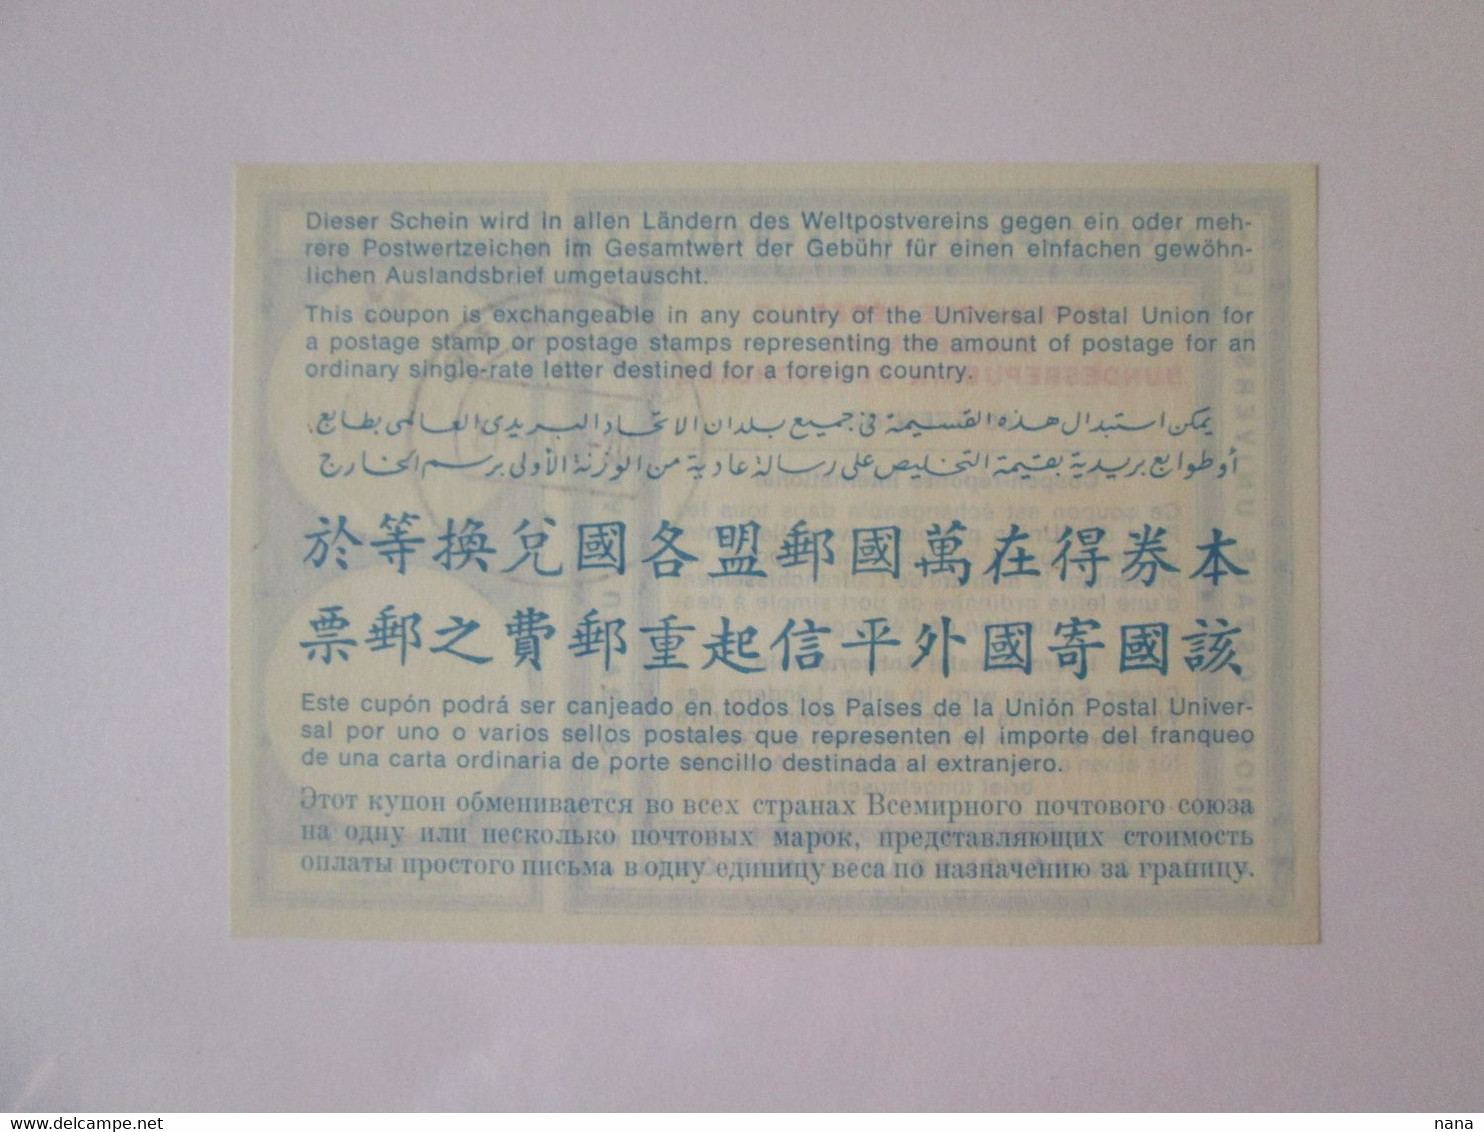 Dieser Schein wird in allen Ländern des Weltpostvereins gegen ein oder meh-
rere Postwertzeichen im Gesamtwert der Gebühr für einen einfachen gewöhn-
lichen Auslandsbrief umgetauscht.
This coupon is exchangeable in any country of the Universal Postal Union for
a postage stamp or postage stamps representing the amount of postage for an
ordinary single-rate letter destined for a foreign country.
يمكن استبدال هذه القسيمة فى جميع بلدان الاتحاد البريدى العالمى بطابع.
أو طوابع بريدية بقيمة التخليص على رسالة عادية من الوزنة الأولى برسم الخارج
本券得在萬國郵盟各國兌換等於
該國寄國外平信起重郵費之郵票
Este cupón podrá ser canjeado en todos los Países de la Unión Postal Univer-
sal por uno o varios sellos postales que representen el importe del franqueo
de una carta ordinaria de porte sencillo destinada al extranjero.
Этот купон обменивается во всех странах Всемирного почтового союза
на одну или несколько почтовых марок, представляющих стоимость
оплаты простого письма в одну единицу веса по назначению за границу.
delcampe.net
nana